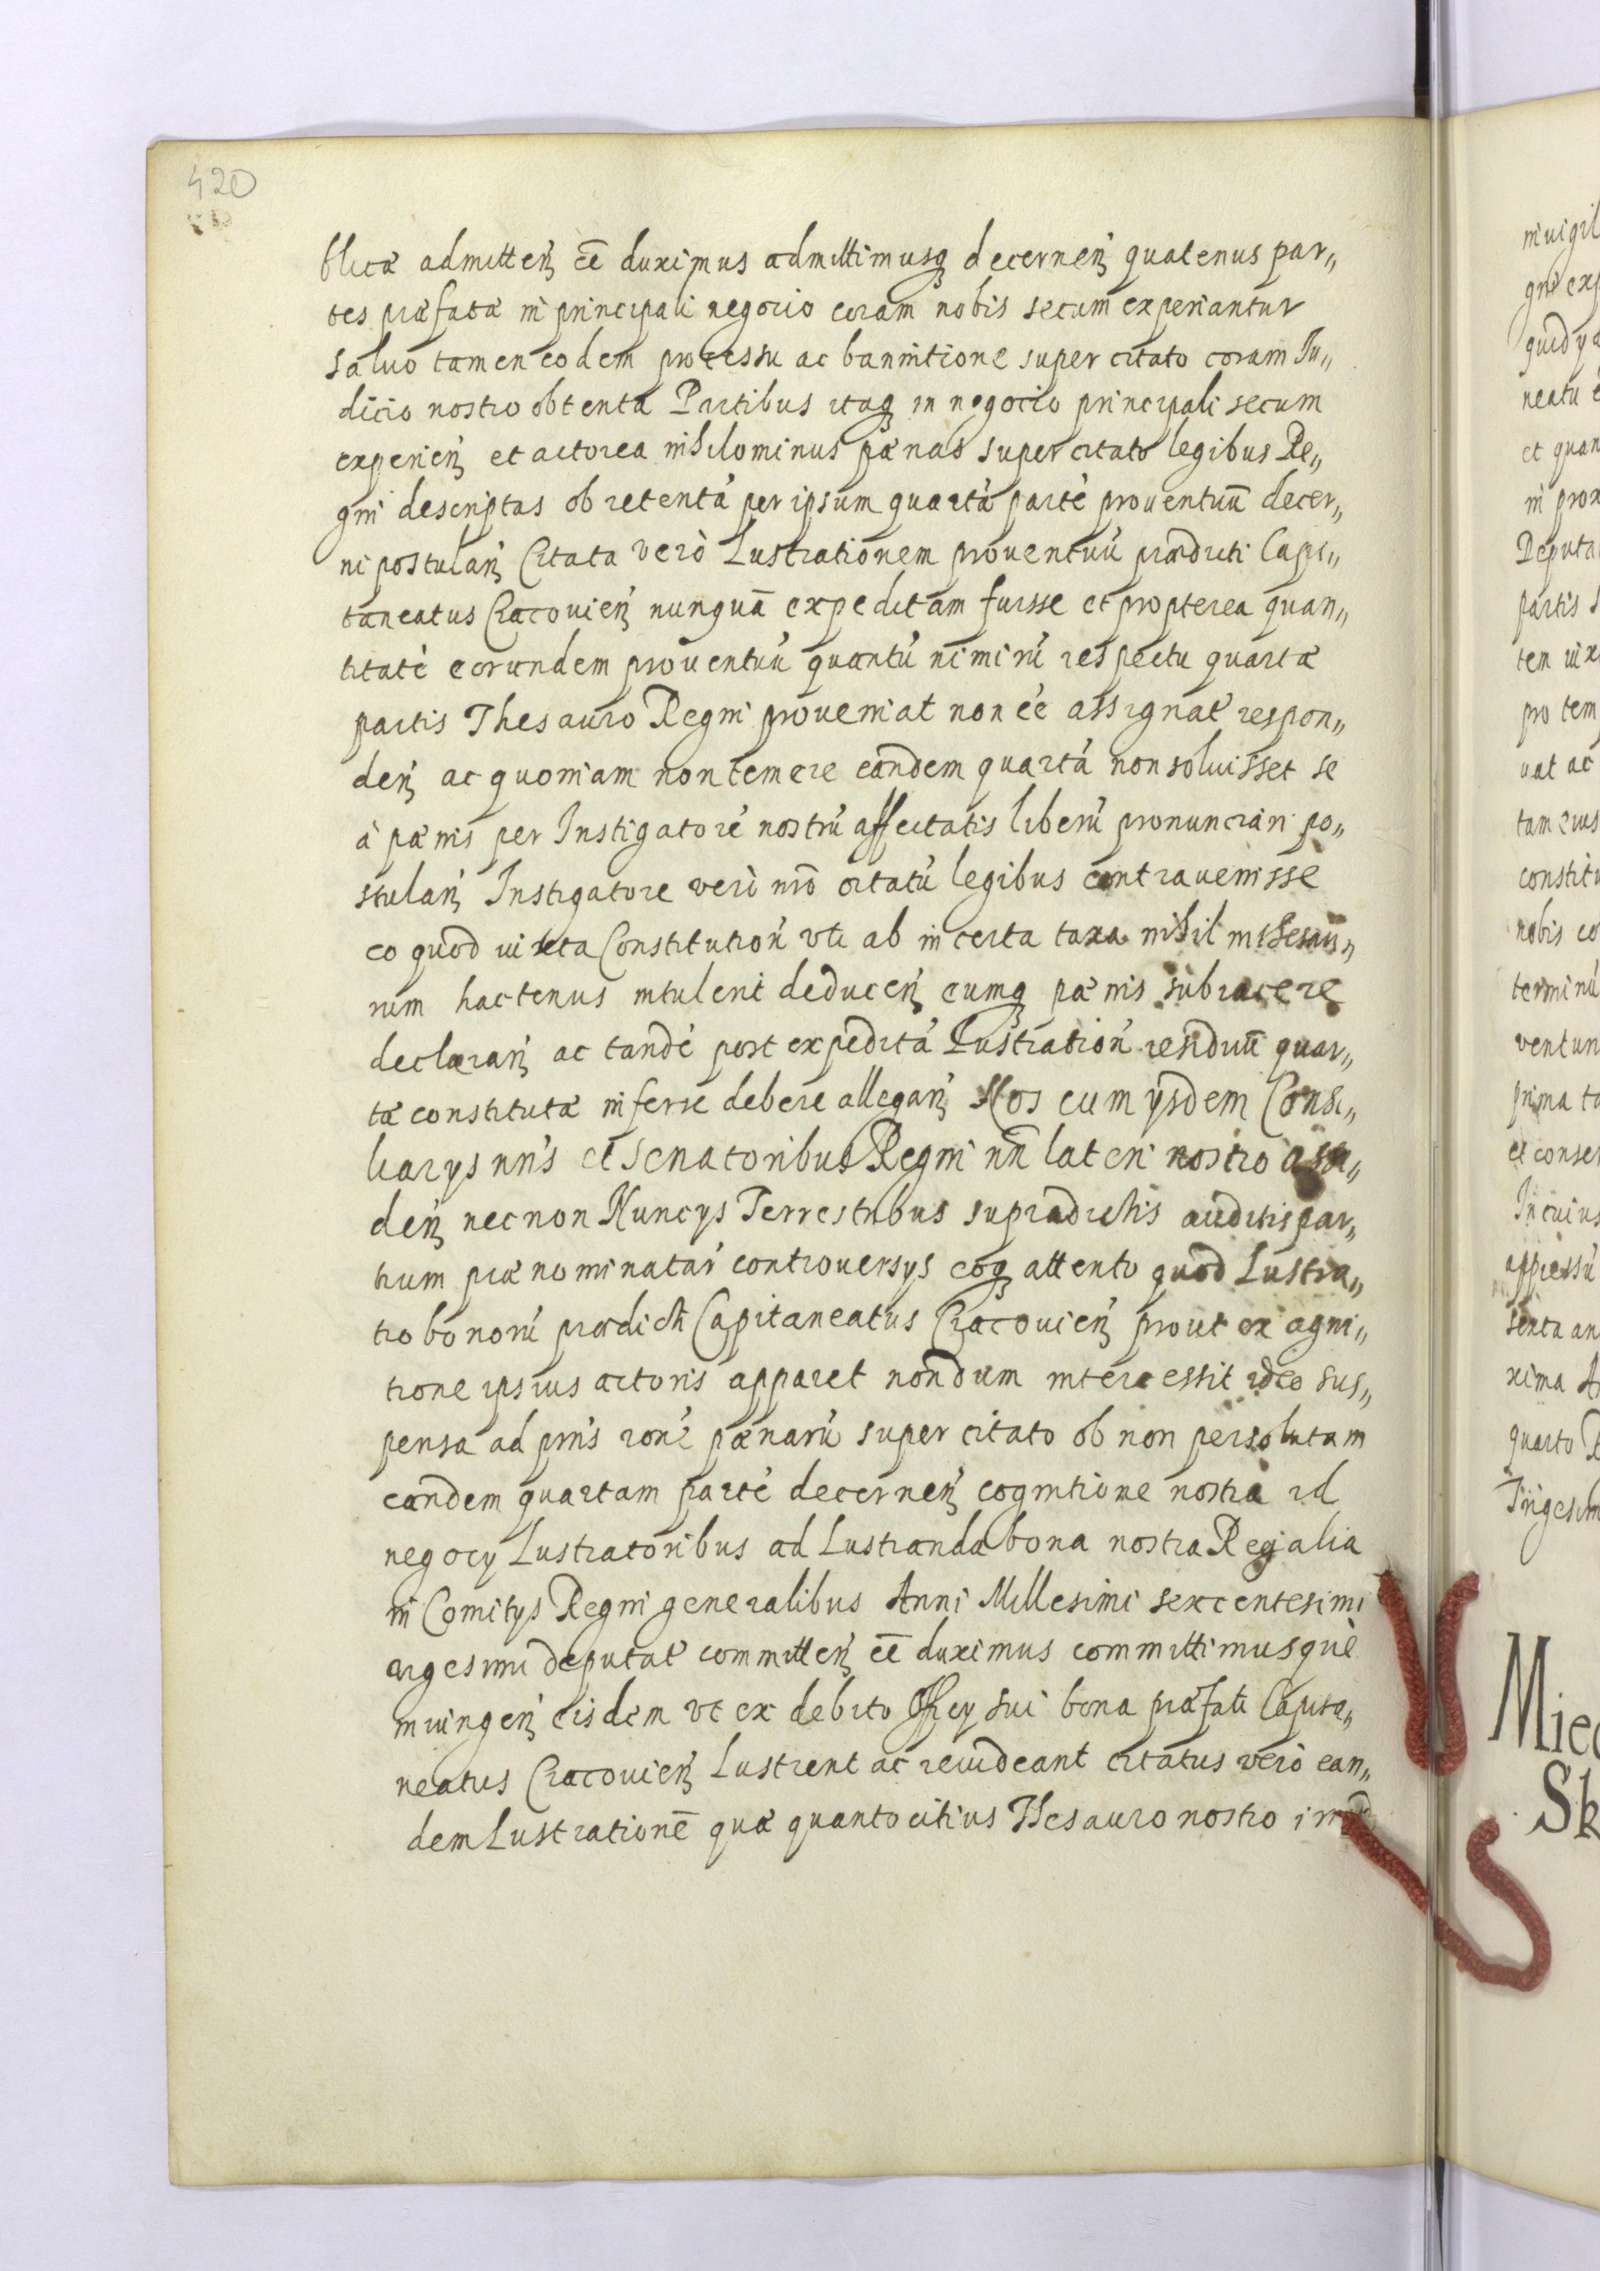 420
blicæ admitteń eē duximus admittimusq decerneń quatenus par„
tes præfatæ in principali negocio coram nobis secum experiantur
saluo tamen eodem processu ac bannitione super citato coram Iu„
dicio nostro obtenta Partibus itaq in negocio principali secum
experień et actorea nihilominus pænas super citato legibus Re„
gni descriptas ob retentá per ipsum quartá parté prouentuū decer„
ni postulań Citata verò Lustrationem prouentuú prædicti Capi„
taneatus Cracouień nunquā expeditam fuisse et propterea quan„
titaté eorundem prouentuú quantú nimirú respectu quartæ
partis Thesauro Regni proueniat non eé assignatæ respon„
deń ac quoniam non temere eandem quartá non soluisset se
à pænis per Instigatoré nostrú affectatis liberú pronunciari po„
stulań Instigatore verò nr̄o citatú legibus contrauenisse
eo quod iuxta Constitutioń vti ab incerta taxa nihil in Thesau„
rum hactenus intulerit deduceń eumq pænis subiacere
declarań ac tandé post expeditá Lustratioń residuū quar„
tæ constitutæ inferre debere allegań Nos cum ijsdem Consi„
liarijs nr̄is et Senatoribus Regni nr̄i lateri nostro assi„
deń necnon Nuncijs Terrestribus supradictis auditis par„
tium præ nominatar controuersijs eoq attento quod Lustra„
tio bonorú prædicti Capitaneatus Cracouień prout ex agni„
tione ipsius actoris apparet nondum intercessit ideo sus„
pensa ad prn̄s roné pænarú super citato ob non persolutam
eandem quartam parté decerneń cognitione nostra id
negocij Lustratoribus ad Lustranda bona nostra Regalia
in Comitijs Regni generalibus Anni Millesimi sexcentesimi
vigesimi deputatæ committeń eē duximus committimusquè
iniungeń eisdem vt ex debito officij sui bona præfati Capita„
neatus Cracouień Lustrent ac reuideant citatus verò ean„
dem Lustrationē quæ quantocitius Thesauro nostro
inuigil
quidy
neatu
et quan
in prox
Deputa
partis
pro tem
uat ac
tam eius
constitu
nobis co
terminú
ventun
prima ta
et conser
In cuius
appressú
xima
quarto
Trigesim
Miec
Sk